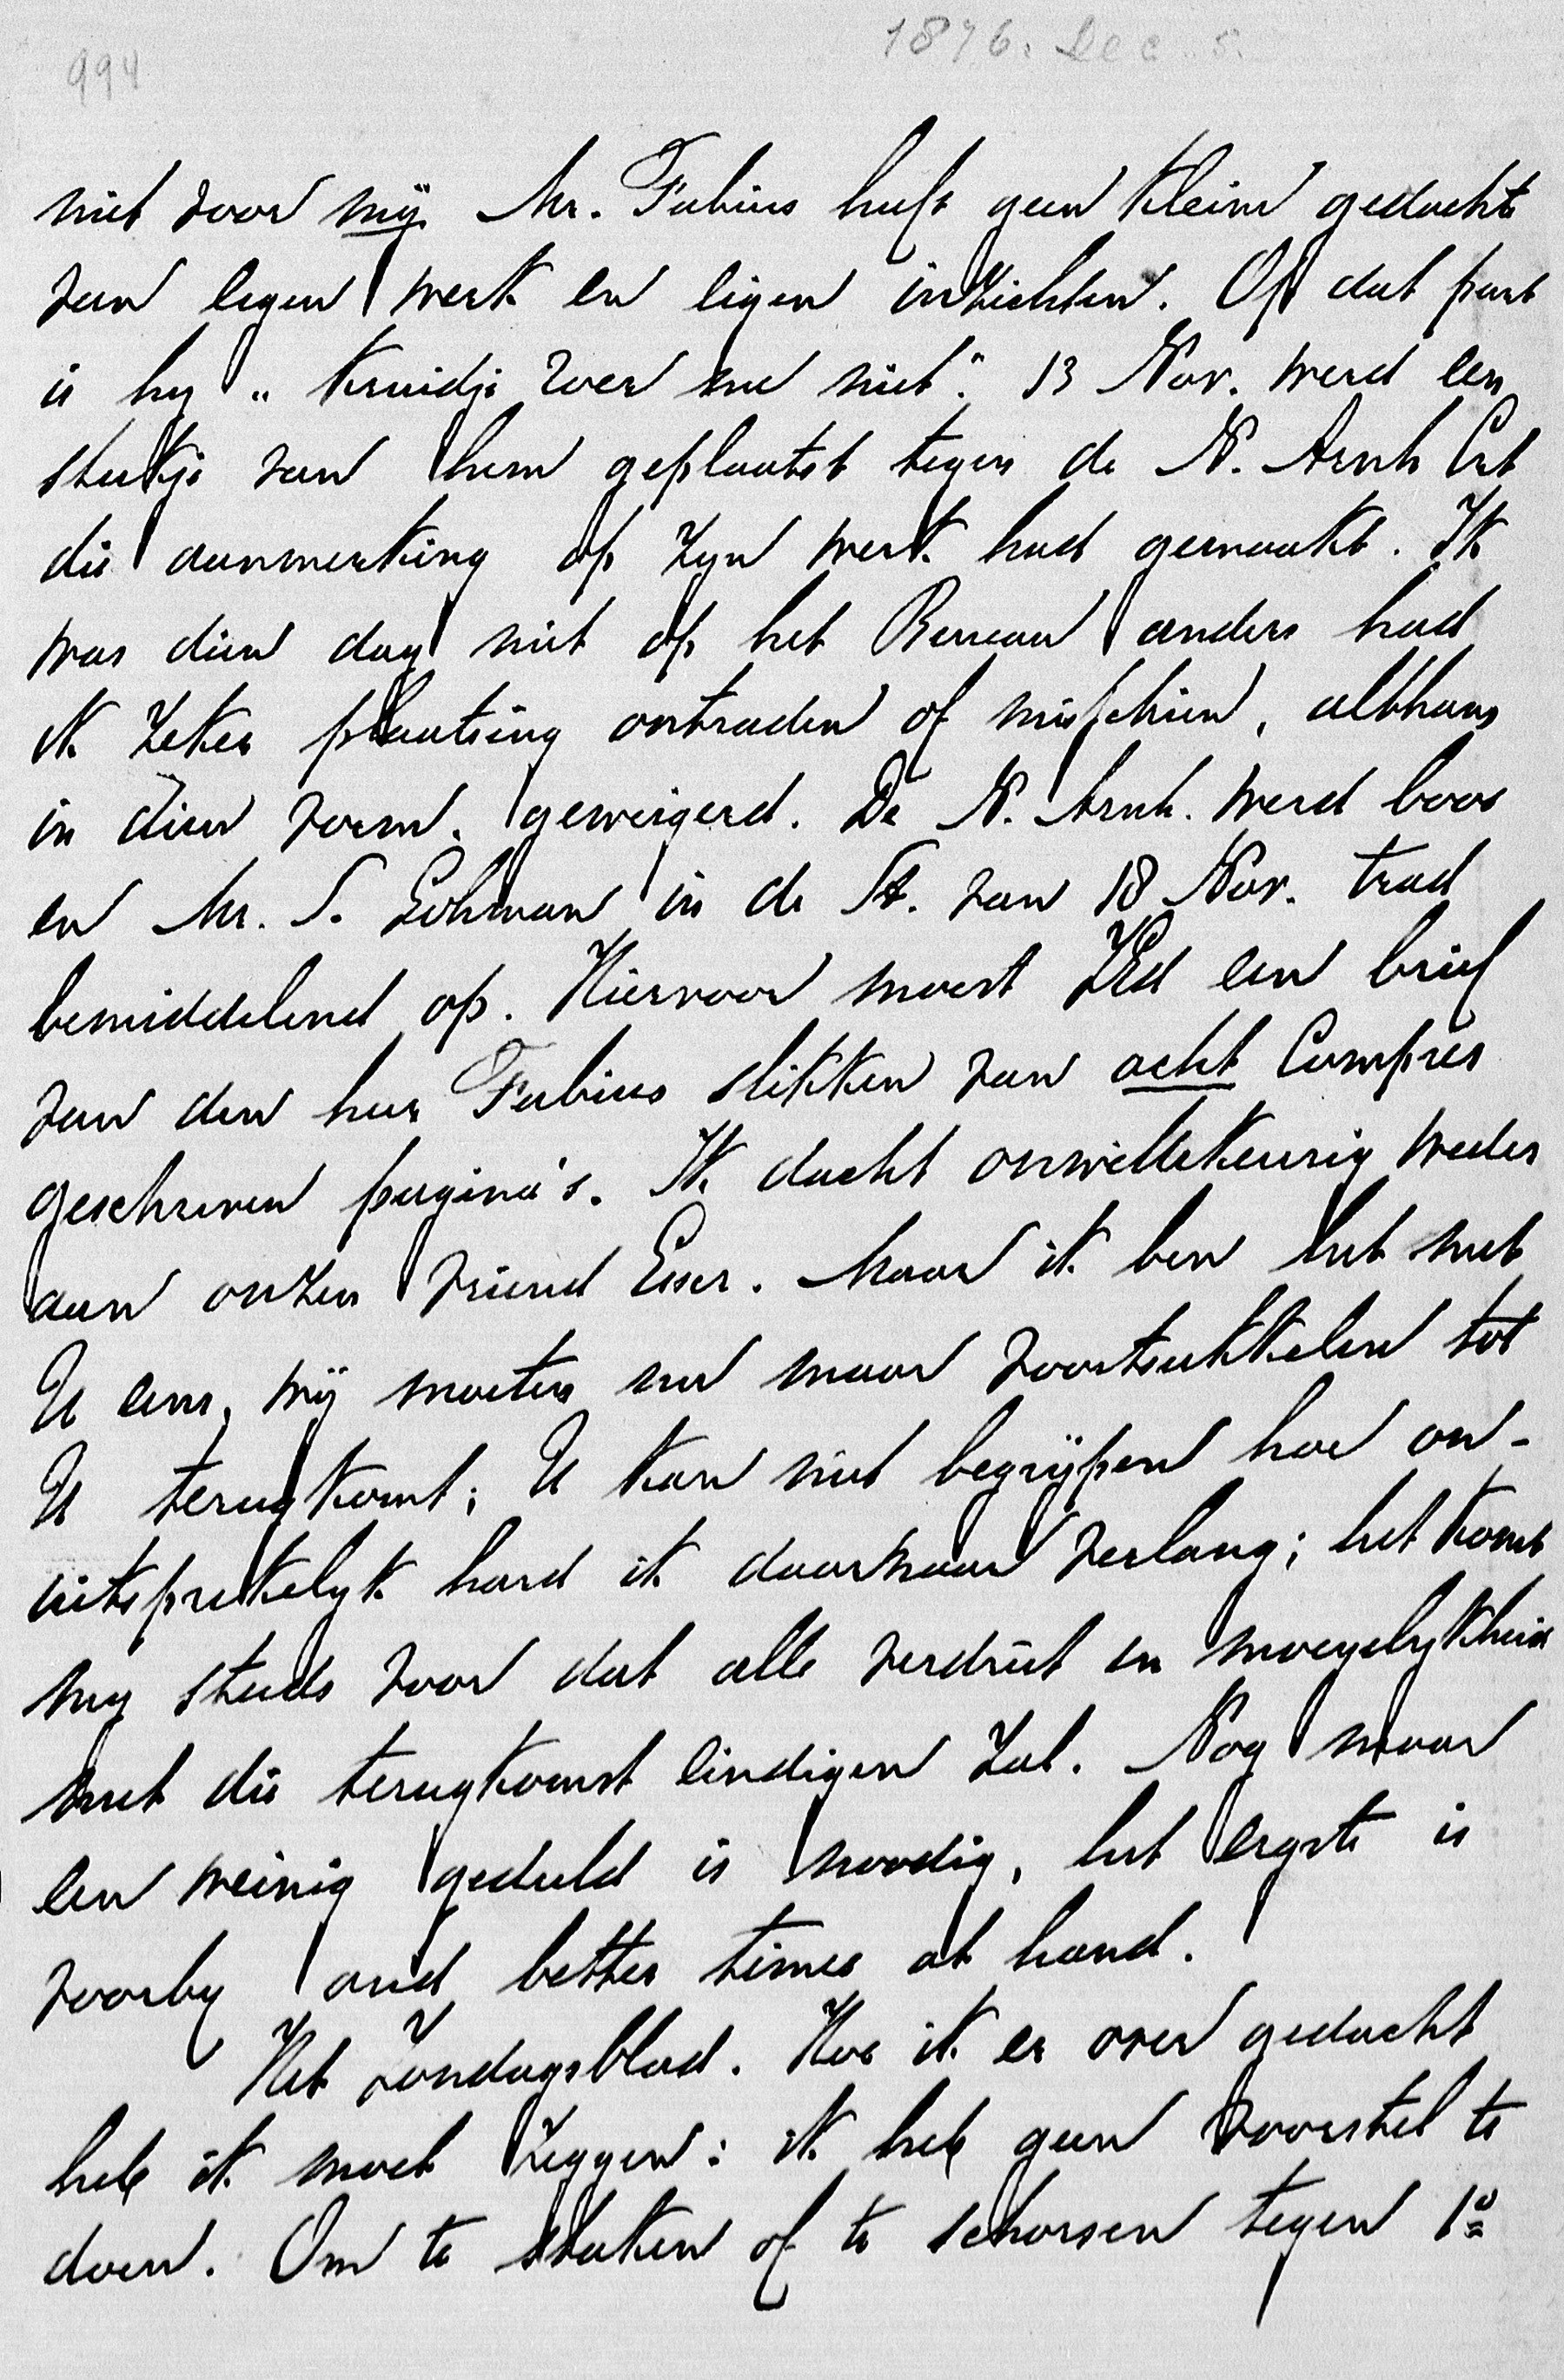 1876. Dec. 5.
994
niet voor mij. Mr. Fabius heeft geen klein gedachte
van eigen werk en eigen inzichten. Op dat punt
is hy „kruidje roer me niet". 13 Nov. werd een
stukje van hem geplaatst tegen de N. Arnh Crt
die aanmerking op zyn werk had gemaakt. Ik
was dien dag niet op het Bureau anders had
ik zeker plaatsing ontraden of misschien, althans
in dien vorm, geweigerd. De N. Arnh. werd boos
en Mr. S. Lohman in de St. van 18 Nov. trad
bemiddelend op. Hiervoor moest ZEd een brief
van den heer Fabius slikken van acht compres
geschreven pagina's. Ik dacht onwillekeurig weder
aan onzen vriend Esser. Maar ik ben het met
U eens, wij moeten nu maar voortsukkelen tot
U terugkomt; U kan niet begrijpen hoe on-
uitsprekelyk hard ik daarnaar verlang; het komt
my steeds voor dat alle verdriet en moeyelykheid
met die terugkomst eindigen zal. Nog maar
een weinig geduld is noodig, het ergste is
voorby and better times at hand.
Het Zondagsblad. Hoe ik er over gedacht
heb ik moet zeggen: ik heb geen voorstel te
doen. Om te staken of te schorsen tegen 1o